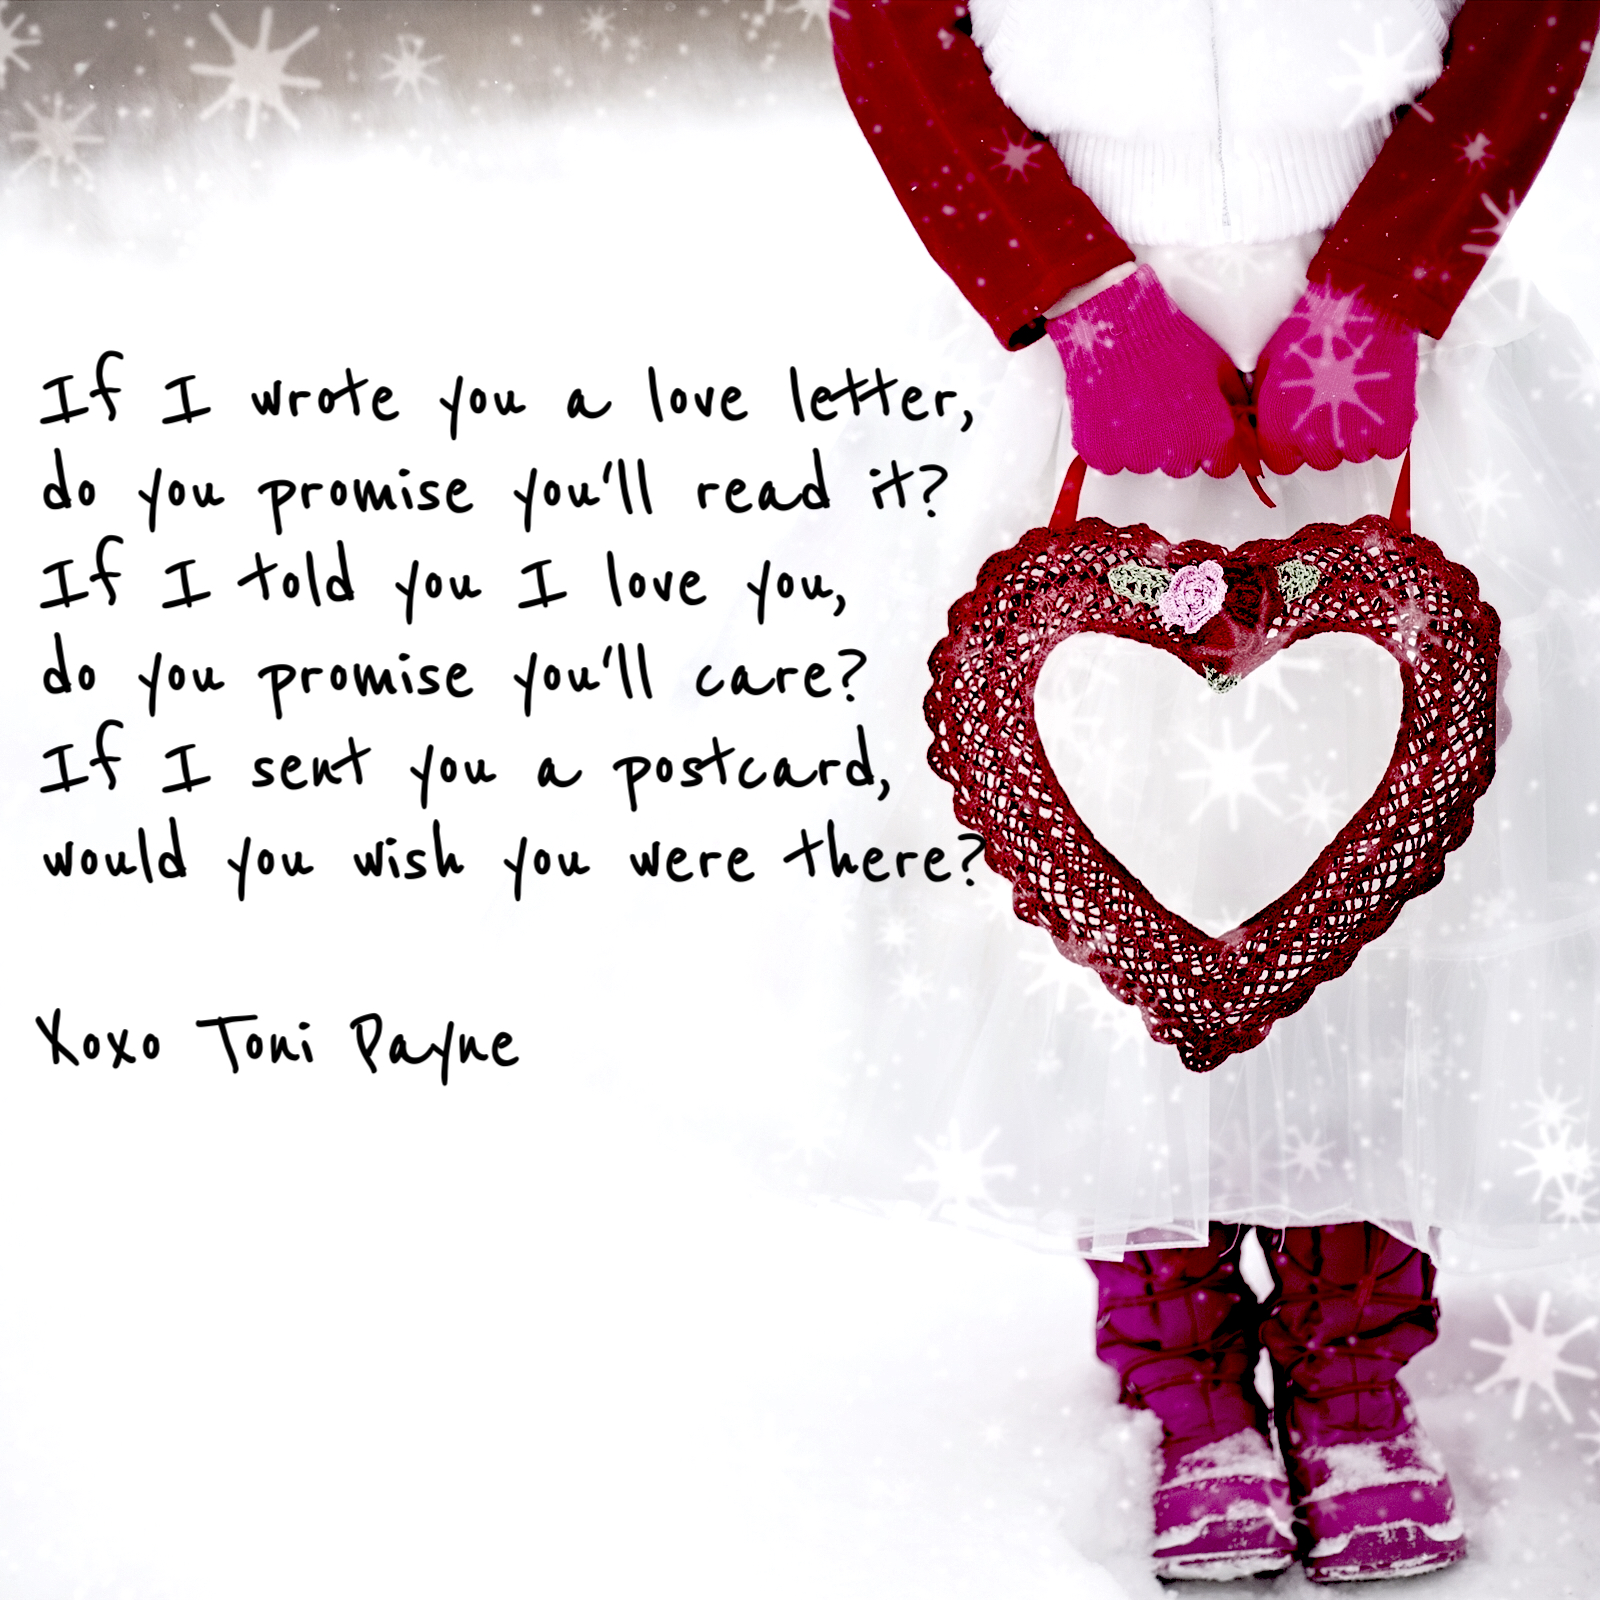 If I wrote you a love letter,
do you promise you'll read it?
If I told you I love you,
do you promise you'll care?
If I sent you a postcard,
would you wish you were there?
Xoxo Toni Payne